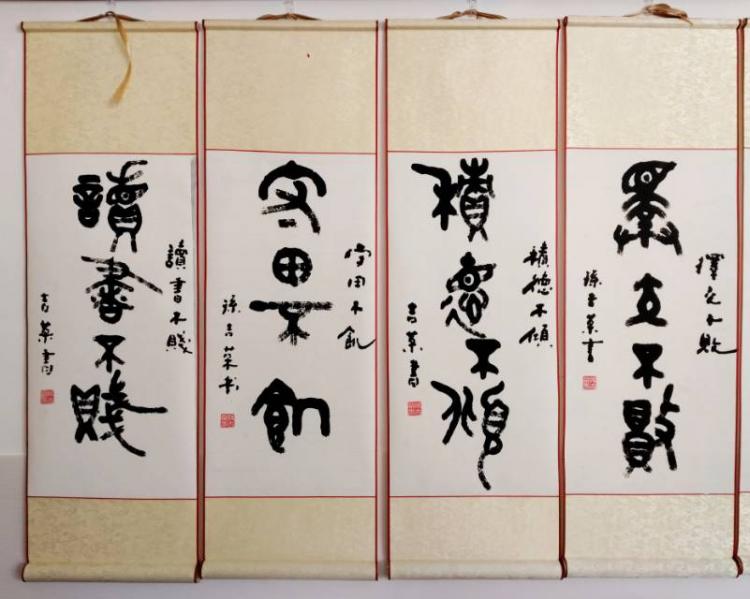 讀書不賤
讀書不賤
吉菜書
守田不飢
守田不飢
孫吉菜书
積德不傾
積德不傾
吉菜書
擇交不敗
擇交不敗
孫吉菜書